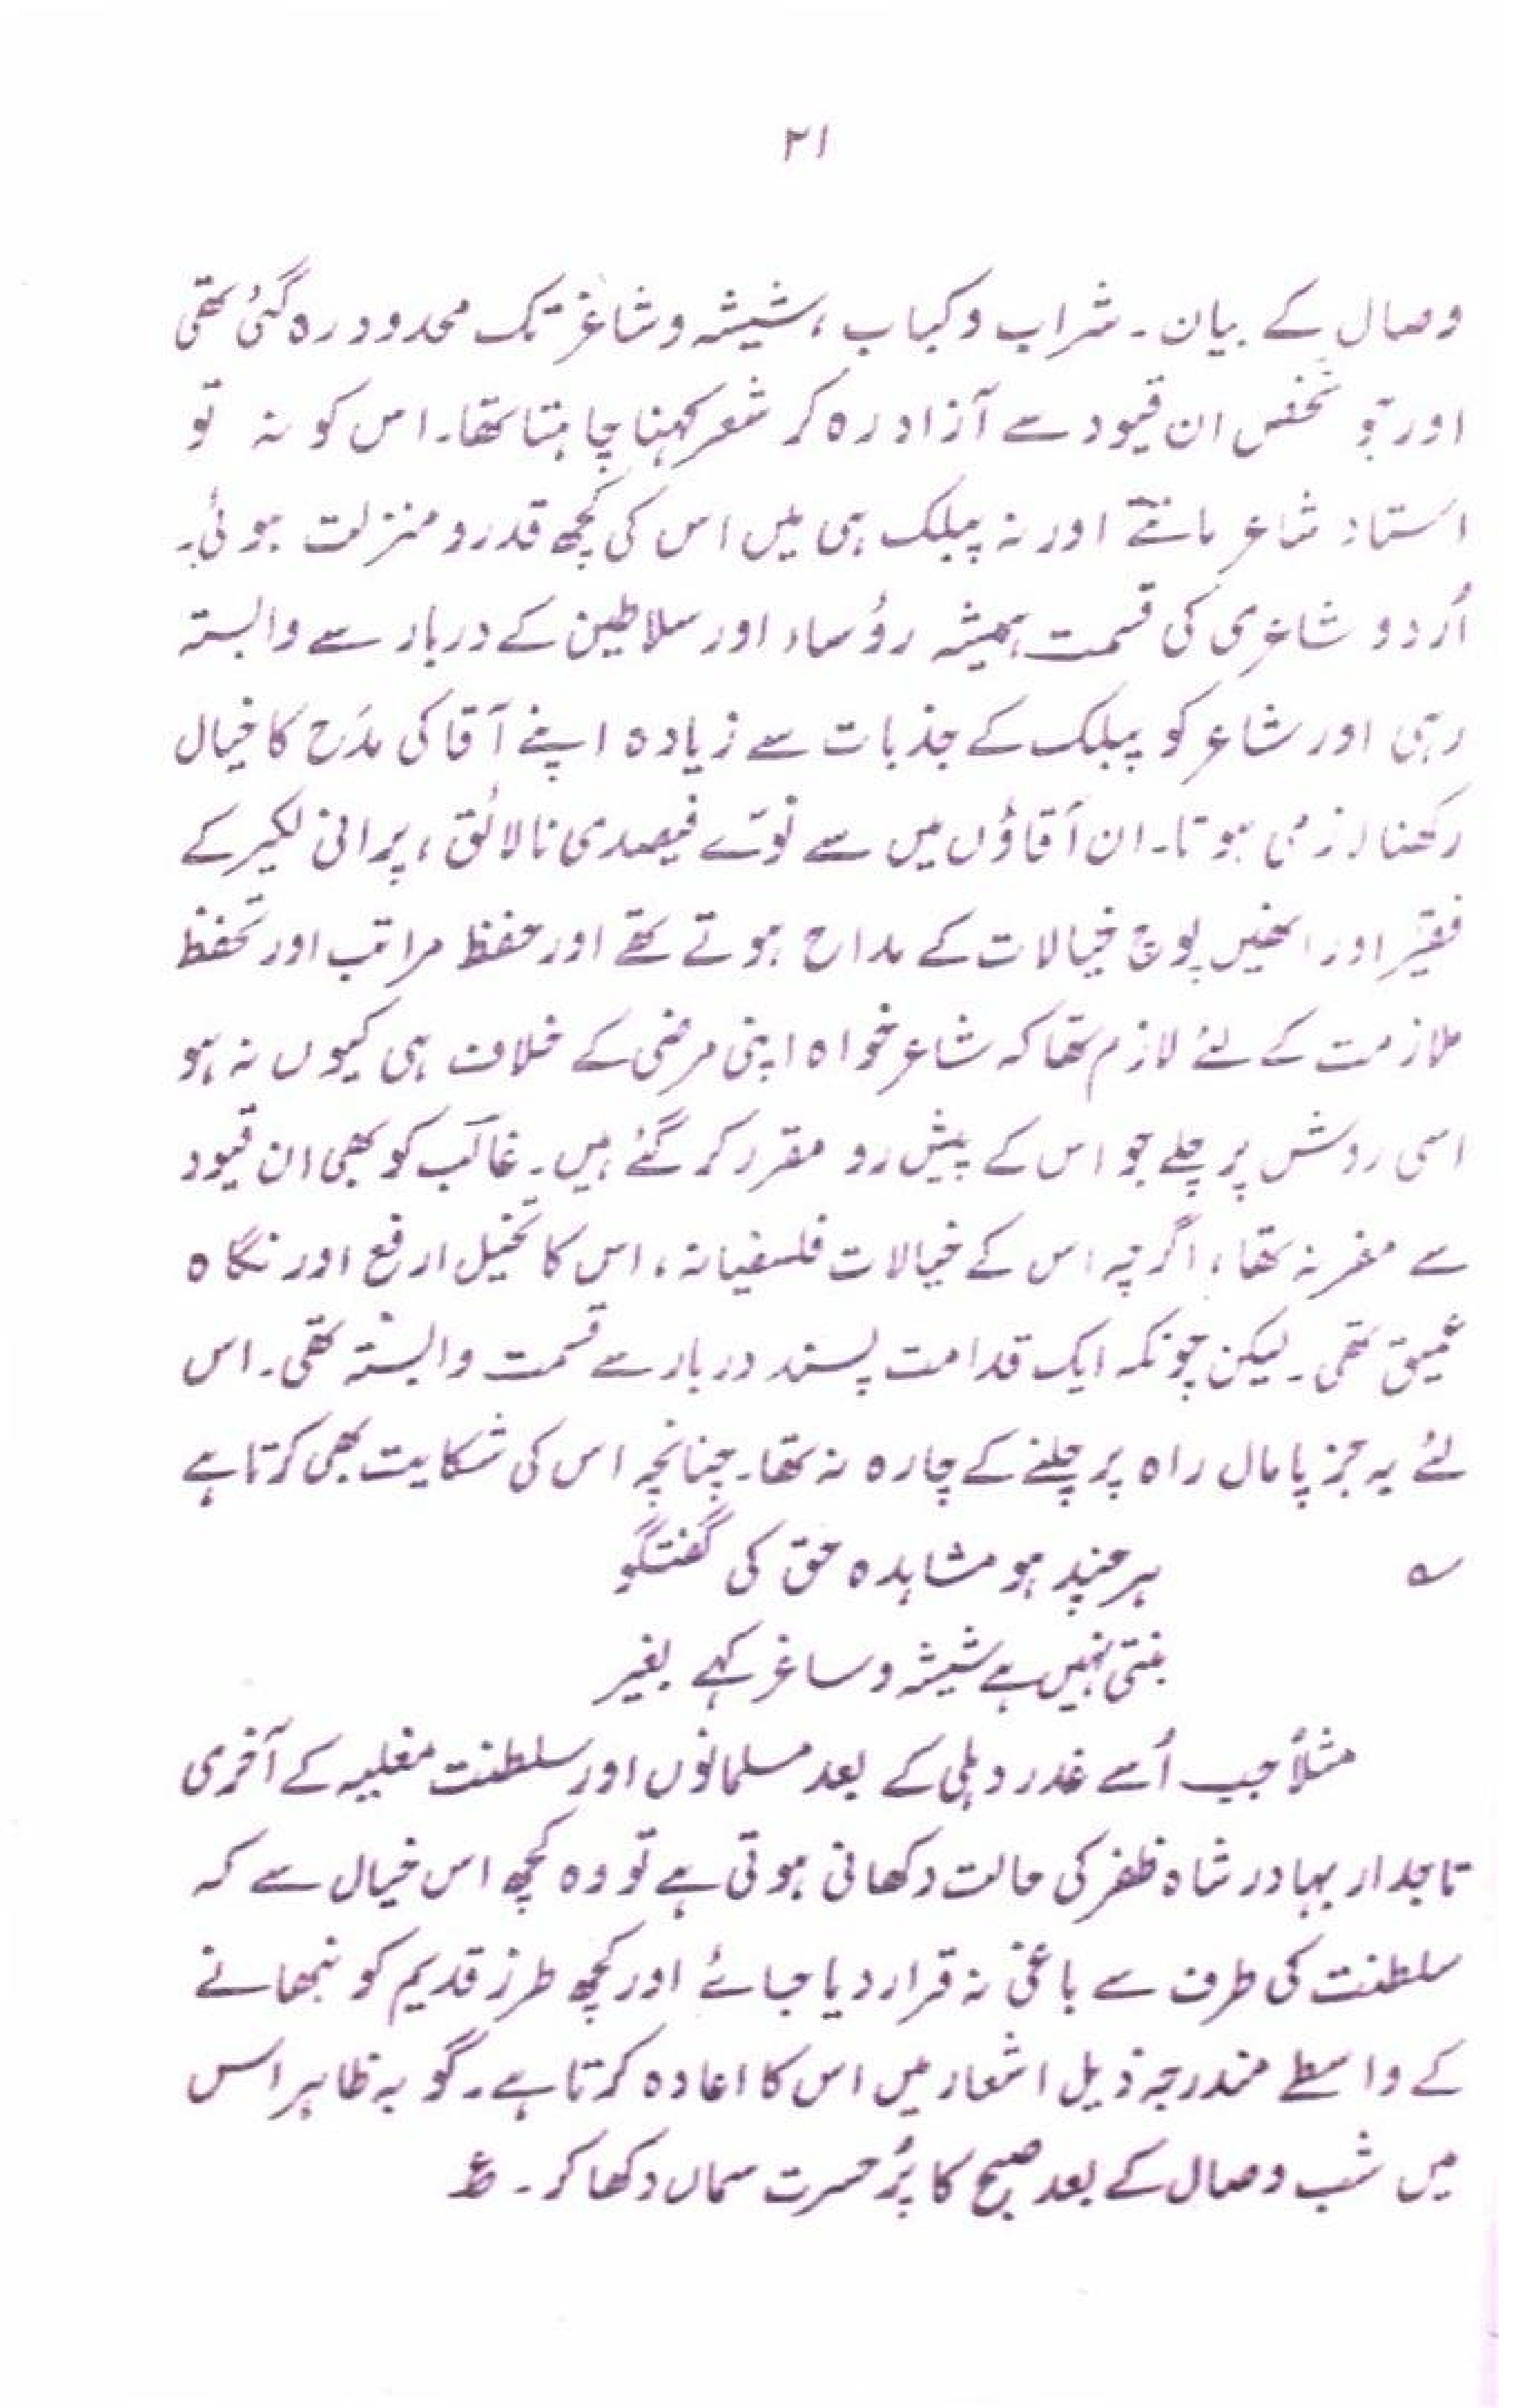 ۲۱
وصال کے بیان۔ شراب و کباب، شیشہ و شاغر تک محدود رہ گئی تھی
اور جو شخص ان قیود سے آزاد رہ کر شعر کہنا چاہتا تھا۔ اس کو نہ تو
استاد شاعر مانتے اور نہ پبلک ہی میں اس کی کچھ قدر و منزلت ہوئی۔
اُردو شاعری کی قسمت ہمیشہ رؤساء اور سلاطین کے دربار سے وابستہ
رہی اور شاعر کو پبلک کے جذبات سے زیادہ اپنے آقا کی مدَح کا خیال
رکھنا لازمی ہوتا۔ ان آقاؤں میں سے نوّے فیصدی نالائق، پرانی لکیر کے
فقیر اور انھیں پوچ خیالات کے مداح ہوتے تھے اور حفظ مراتب اور تحفظ
ملازمت کے لئے لازم تھا کہ شاعر خواہ اپنی مرضی کے خلاف ہی کیوں نہ ہو
اسی روش پر چلے جو اس کے پیش رو مقرر کر گئے ہیں۔ غالب کو بھی ان قیود
سے مفر نہ تھا، اگرچہ اس کے خیالات فلسفیانہ، اس کا تخیل ارفع اور نگاہ
عمیق تھی۔ لیکن چونکہ ایک قدامت پسند دربار سے قسمت وابستہ تھی۔ اس
لئے یہ جز پامال راہ پر چلنے کے چارہ نہ تھا۔ چنانچہ اس کی شکایت بھی کرتا ہے
؎ ہر چند ہو مشاہدہ حق کی گفتگو
بنتی نہیں ہے شیشہ و ساغر کہے بغیر
مثلاً جب اُسے غدر دہلی کے بعد مسلمانوں اور سلطنت مغلیہ کے آخری
تاجدار بہادر شاہ ظفر کی حالت دکھانی ہوتی ہے تو وہ کچھ اس خیال سے کہ
سلطنت کی طرف سے باغی نہ قرار دیا جائے اور کچھ طرز قدیم کو نبھانے
کے واسطے مندرجہ ذیل اشعار میں اس کا اعادہ کرتا ہے۔ گو بہ ظاہر اس
میں شب وصال کے بعد صبح کا پُر حسرت سماں دکھا کر۔ ع